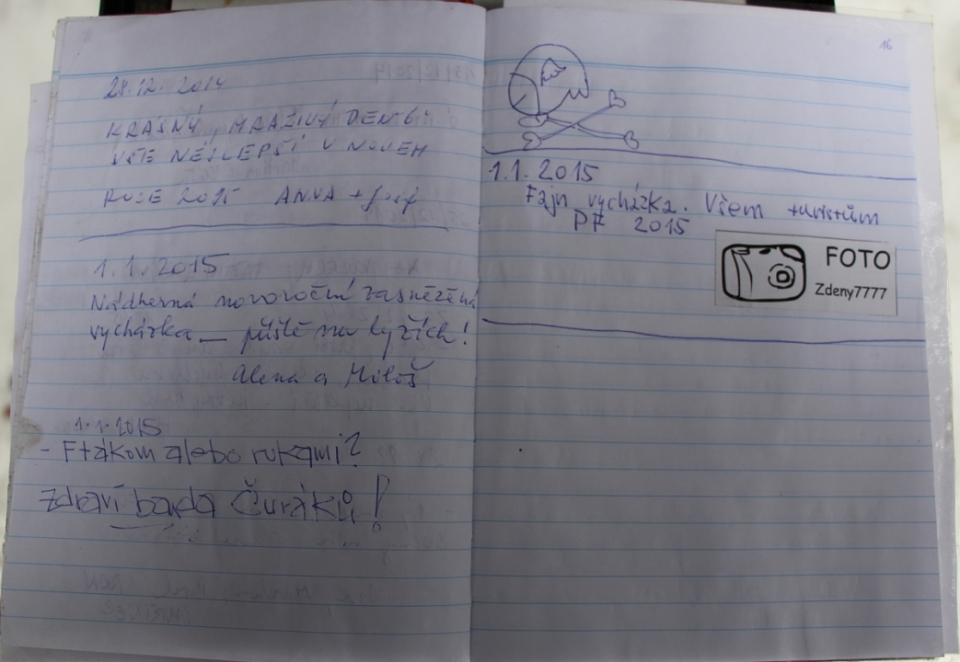 28.12. 2014
KRÁSNÝ MRAZIVÝ DEN
VŠE NEJLEPŠÍ V NOVÉM
ROCE 2015 ANNA +
1.1.2015
Nádherná novoroční zasněžená
vycházka — příště na lyžích!
Alena a Miloš
1.1.2015
- Ftákom alebo rukami?
Zdraví banda Čuráků!
16
1.1. 2015
Fajn vycházka. Všem turistům
PF 2015
FOTO
Zdeny7777